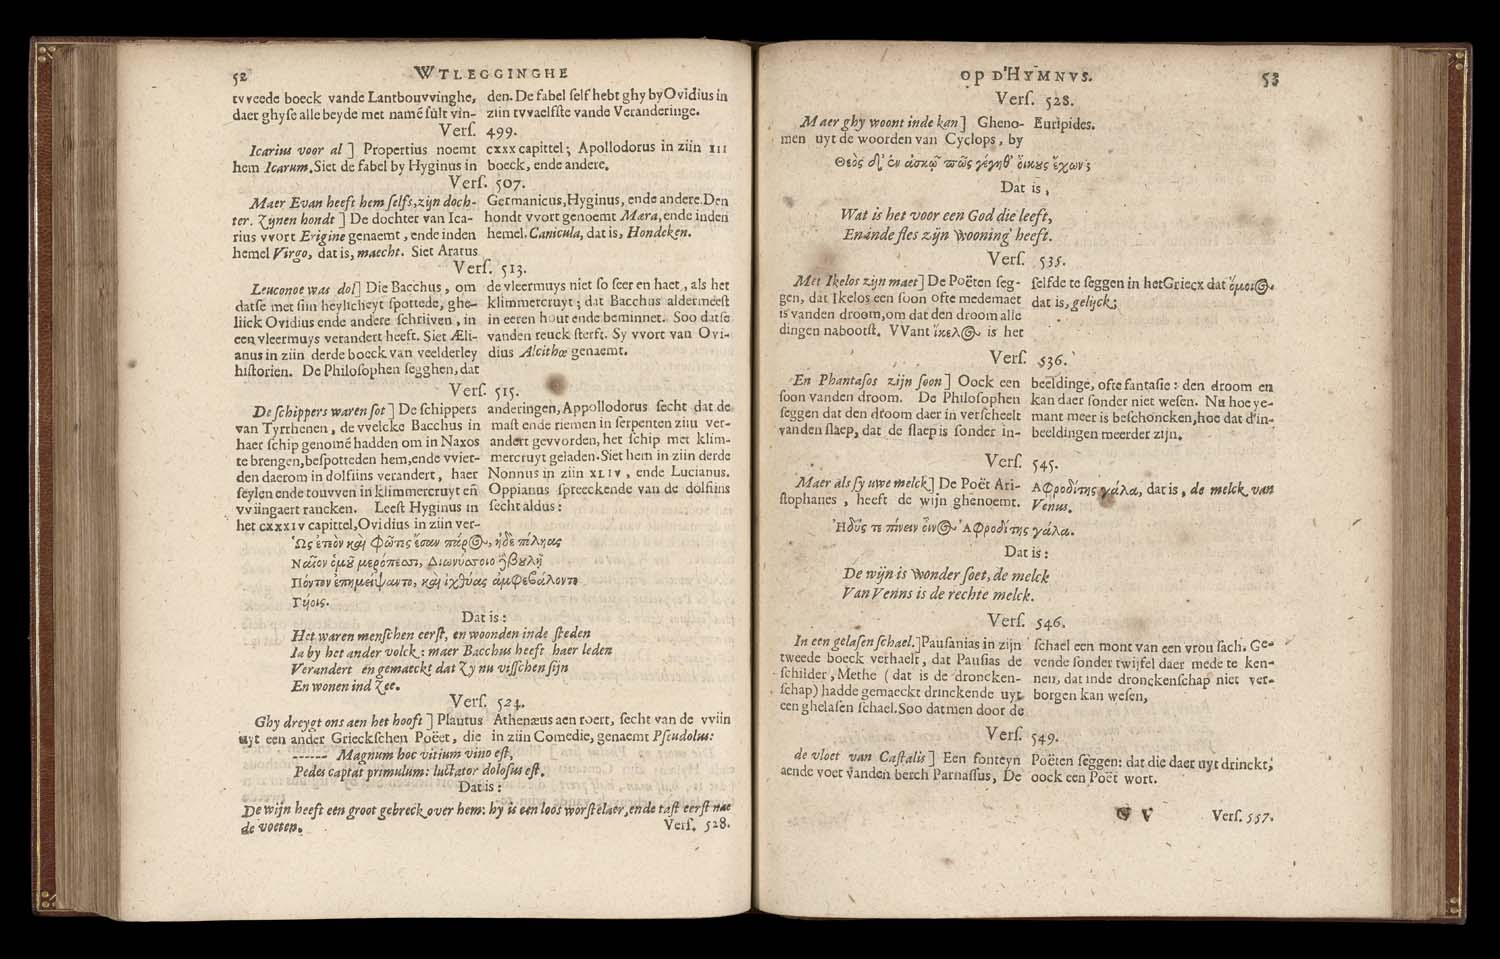 52 WTLEGGINGHE
tvveede boeck vande Lantbouvvinghe,
daer ghyse alle beyde met namē sult vin-
den. De fabel self hebt ghy by Ovidius in
ziin tvvaelfste vande Veranderinge.
Vers. 499.
Icarius voor al ] Propertius noemt
hem Icarum. Siet de fabel by Hyginus in
cxxx capittel; Apollodorus in ziin III
boeck, ende andere.
Vers. 507.
Maer Evan heeft hem selfs, zijn doch-
ter. Zijnen hondt ] De dochter van Ica-
rius vvort Erigine genaemt, ende inden
hemel Virgo, dat is, maecht. Siet Aratus
Germanicus, Hyginus, ende andere. Den
hondt vvort genoemt Mæra, ende inden
hemel. Canicula, dat is, Hondeken.
Vers. 513.
Leuconoe was dol] Die Bacchus, om
datse met siin heylicheyt spottede, ghe-
liick Ovidius ende andere schriiven, in
een vleermuys verandert heeft. Siet Æli-
anus in ziin derde boeck van veelderley
historien. De Philosophen segghen, dat
de vleermuys niet so seer en haet, als het
klimmercruyt; dat Bacchus aldermeest
in eeren hout ende beminnet. Soo datse
vanden reuck sterft. Sy vvort van Ovi-
dius Alcithoe genaemt.
Vers. 515.
De schippers waren sot ] De schippers
van Tyrrhenen, de vvelcke Bacchus in
haer schip genomē hadden om in Naxos
te brengen, bespotteden hem, ende vvier-
den daerom in dolfiins verandert, haer
seylen ende touvven in klimmercruyt eñ
vviingaert rancken. Leest Hyginus in
het cxxxiv capittel, Ovidius in ziin ver-
anderingen, Appollodorus secht dat de
mast ende riemen in serpenten ziin ver-
andert gevvorden, het schip met klim-
mercruyt geladen. Siet hem in ziin derde
Nonnus in ziin XLIV, ende Lucianus.
Oppianus spreeckende van de dolfiins
secht aldus:
Ὡς ἐτεὸν καὶ φῶτες ἔσαν πάρος, ἠδὲ πόληας
Ναῖον ὁμοῦ μερόπεσσι, Διωνύσοιο ἢ βουλῇ
Πόντον ἐπημείψαντο, καὶ ἰχθύας ἀμφεβάλοντο
Γυίοις.
Dat is:
Het waren menschen eerst, en woonden inde steden
Ia by het ander volck: maer Bacchus heeft haer leden
Verandert en gemaeckt dat Zy nu visschen sijn
En wonen ind Zee.
Vers. 524.
Ghy dreygt ons aen het hooft ] Plautus
uyt een ander Grieckschen Poëet, die
Athenæus aen roert, secht van de vviin
in ziin Comedie, genaemt Pseudolus:
------ Magnum hoc vitium vino est,
Pedes captat primulum: luctator dolosus est.
Dat is:
De wijn heeft een groot gebreck over hem: hy is een loos worstelaer, ende tast eerst nae
de voeten.
Vers. 528.
OP D'HYMNVS. 53
Vers. 528.
Maer ghy woont inde kan] Gheno-
men uyt de woorden van Cyclops, by
Euripides.
Θεὸς δ' ἐν ἀσκῷ πῶς γέγηθ' οἴκους ἔχων;
Dat is,
Wat is het voor een God die leeft,
En inde fles zijn wooning heeft.
Vers. 535.
Met Ikelos zijn maet] De Poëten seg-
gen, dat Ikelos een soon ofte medemaet
is vanden droom, om dat den droom alle
dingen nabootst. VVant ἴκελος is het
selfde te seggen in het Griecx dat ὅμοιος
dat is, gelijck;
Vers. 536.
En Phantasos zijn soon ] Oock een
soon vanden droom. De Philosophen
seggen dat den droom daer in verscheelt
vanden slaep, dat de slaep is sonder in-
beeldinge, ofte fantasie: den droom en
kan daer sonder niet wesen. Nu hoe ye-
mant meer is beschoncken, hoe dat d'in-
beeldingen meerder zijn.
Vers. 545.
Maer als sy uwe melck] De Poët Ari-
stophanes, heeft de wijn ghenoemt.
Ἀφροδίτης γάλα, dat is, de melck van
Venus.
Ἡδύς τε πίνειν οἶνος Ἀφροδίτης γάλα.
Dat is:
De wijn is wonder soet, de melck
Van Venns is de rechte melck.
Vers. 546.
In een gelasen schael.] Pausanias in zijn
tweede boeck verhaelt, dat Pausias de
schilder, Methe (dat is de droncken-
schap) hadde gemaeckt drinckende uyt
een ghelasen schael. Soo datmen door de
schael een mont van een vrou sach. Ge-
vende sonder twijfel daer mede te ken-
nen, dat inde dronckenschap niet ver-
borgen kan wesen,
Vers. 549.
de vloet van Castalis ] Een fonteyn
aende voet vanden berch Parnassus, De
Poëten seggen: dat die daer uyt drinckt,
oock een Poët wort.
G V Vers. 557.